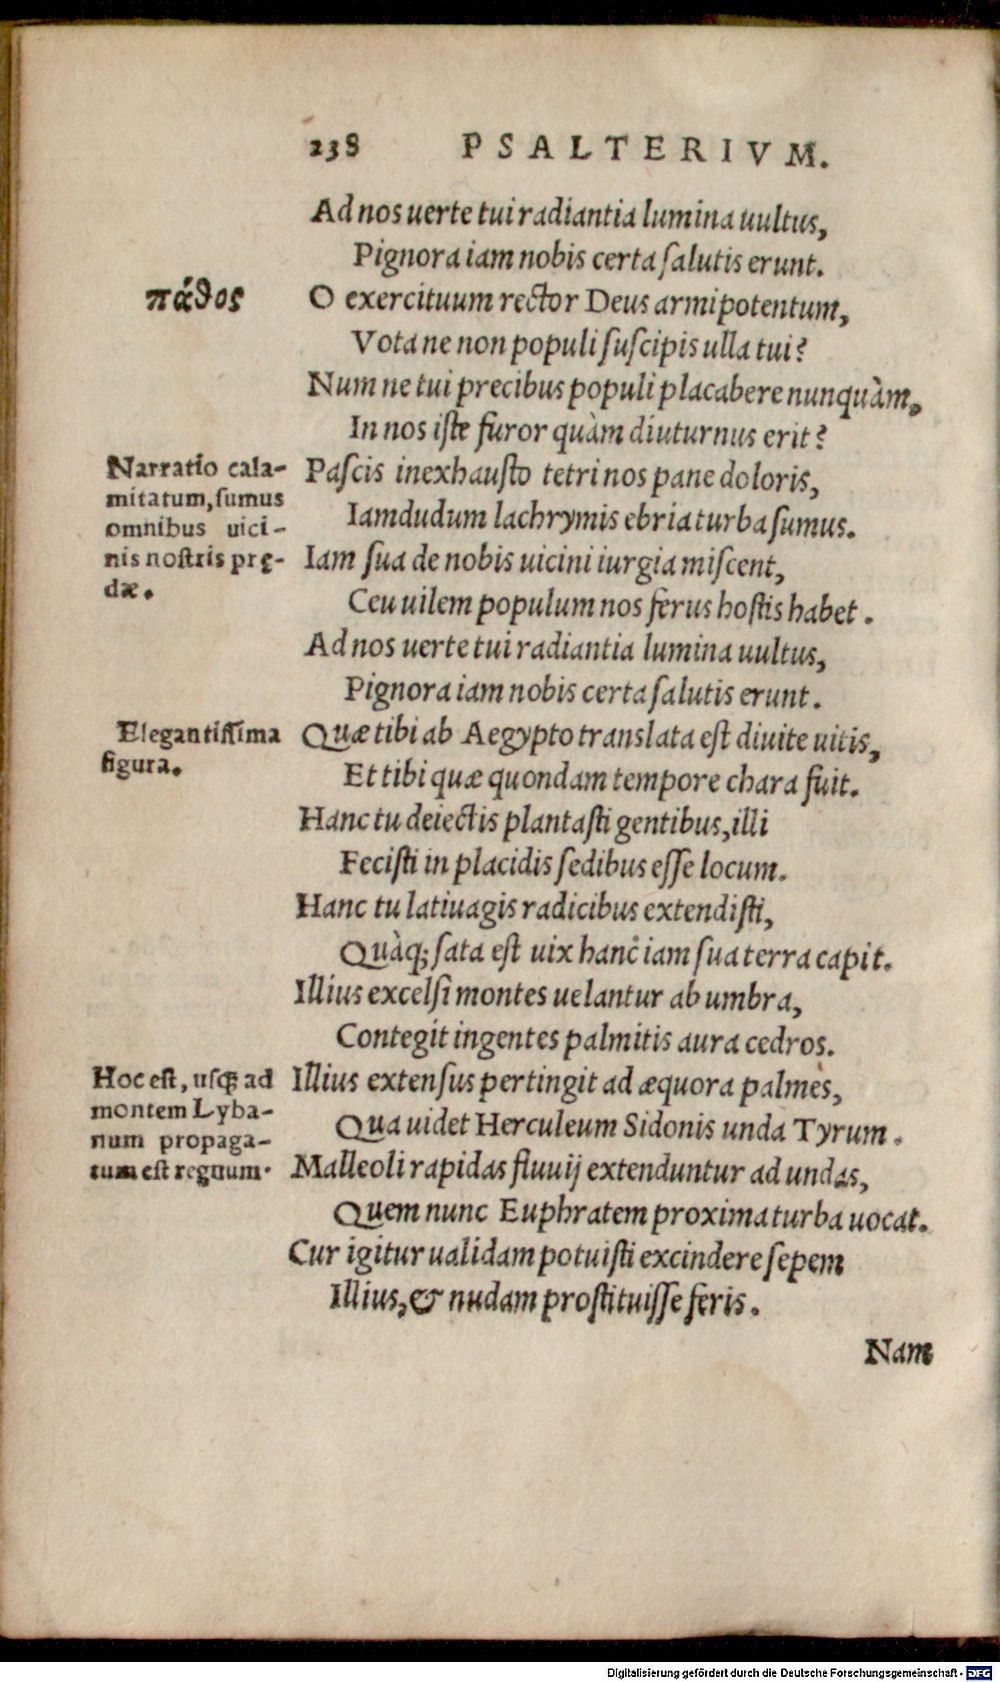 238 PSALTERIVM.
Ad nos uerte tui radiantia lumina uultus,
Pignora iam nobis certa salutis erunt.
πάθος
O exercituum rector Deus armipotentum,
Vota ne non populi suscipis ulla tui?
Num ne tui precibus populi placabere nunquàm,
In nos iste furor quàm diuturnus erit?
Narratio cala-
mitatum, sumus
omnibus uici-
nis nostris prę-
dæ.
Pascis inexhausto tetri nos pane doloris,
Iamdudum lachrymis ebria turba sumus.
Iam sua de nobis uicini iurgia miscent,
Ceu uilem populum nos ferus hostis habet.
Ad nos uerte tui radiantia lumina uultus,
Pignora iam nobis certa salutis erunt.
Elegantissima
figura.
Quæ tibi ab Aegypto translata est diuite uitis,
Et tibi quæ quondam tempore chara fuit.
Hanc tu deiectis plantasti gentibus, illi
Fecisti in placidis sedibus esse locum.
Hanc tu latiuagis radicibus extendisti,
Quàq; sata est uix hanc iam sua terra capit.
Illius excelsi montes uelantur ab umbra,
Contegit ingentes palmitis aura cedros.
Hoc est, usq; ad
montem Lyba-
num propaga-
tum est regnum.
Illius extensus pertingit ad æquora palmes,
Qua uidet Herculeum Sidonis unda Tyrum.
Malleoli rapidas fluuij extenduntur ad undas,
Quem nunc Euphratem proxima turba uocat.
Cur igitur ualidam potuisti excindere sepem
Illius, & nudam prostituisse feris.
Nam
Digitalisierung gefördert durch die Deutsche Forschungsgemeinschaft - DFG